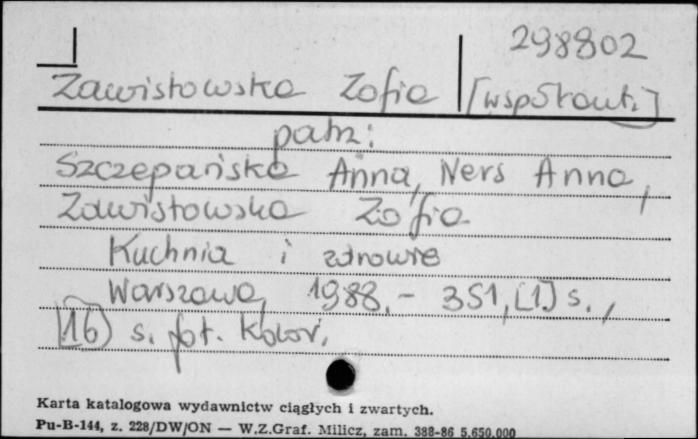 298802
Zawistowska Zofia [współaut.]
patrz:
Szczepańska Anna, Ners Anna,
Zawistowska Zofia
Kuchnia i zdrowie
Warszawa, 1988.- 351,[1] s.,
[16] s. fot. kolor.
Karta katalogowa wydawnictw ciągłych i zwartych.
Pu-B-144, z. 228/DW/ON — W.Z.Graf. Milicz, zam. 388-86 5.650.000